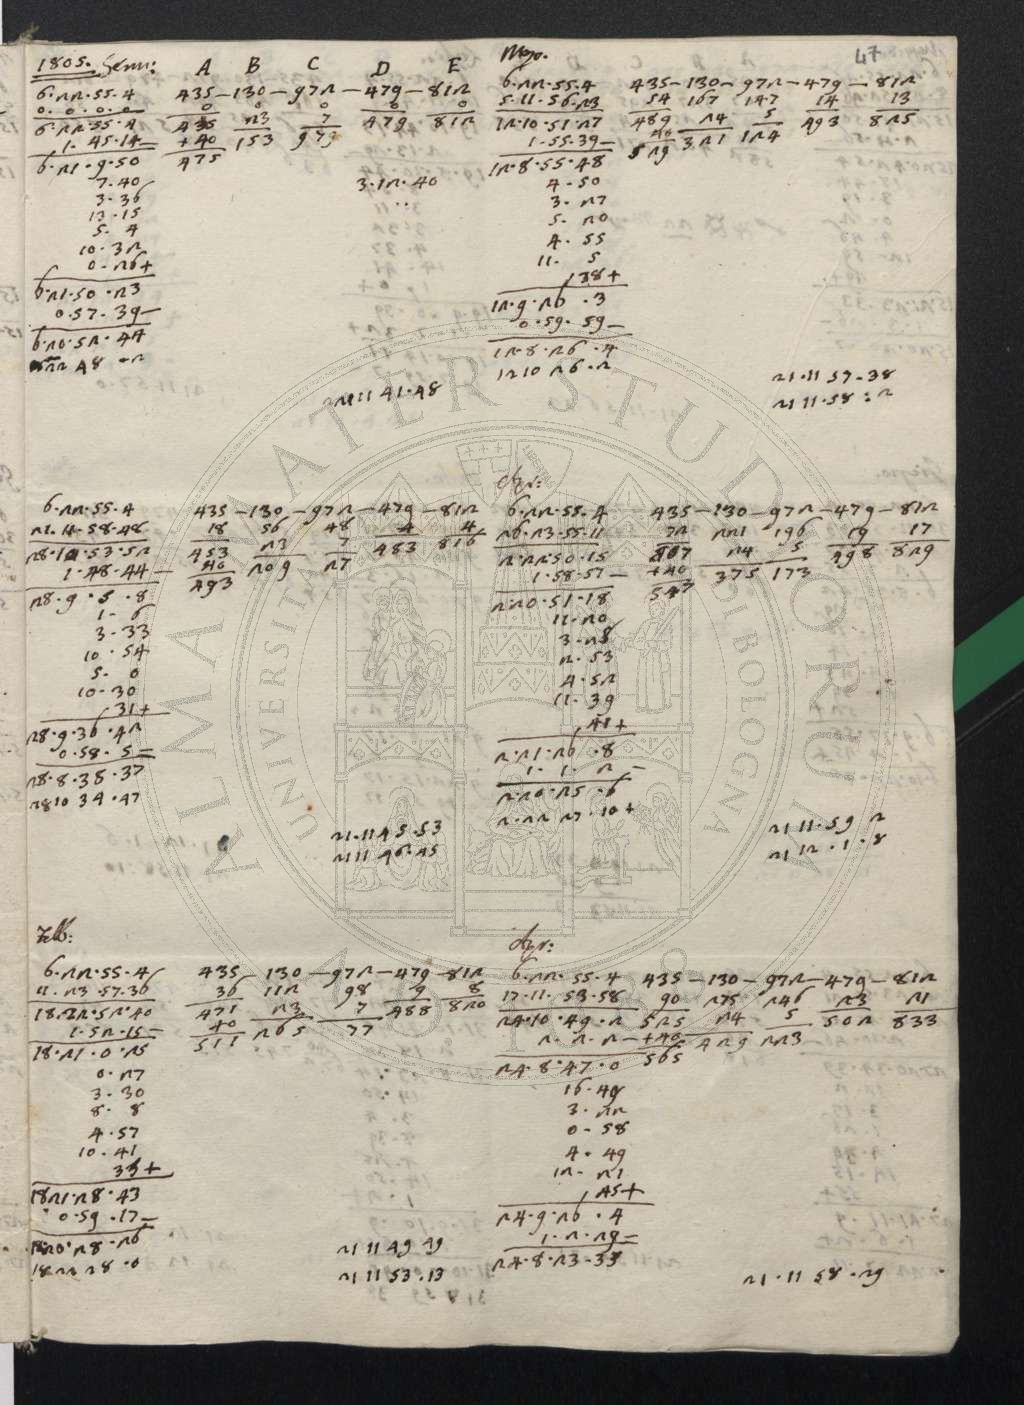 47
1805. Genn:
A B C D E
6.22.55.4 435-130-972-479-812
0.0.0.0 0 0 0 0 0
6.22.55.4 435 23 7 479 812
1.45.14- +40 153 979
6.21.9.50 475
7.40 3.12.40
3.36
13.15
5.4
10.32
0.26+
6.21.50.23
0.57.39-
6.20.52.44
22 48.2
11 41.48
6.22.55.4 435-130-972-479-812
21.11.58.48 18 56 48 4 4
28.10.53.52 453 23 7 483 816
1.48.44- 40 209 27
28.9.5.8 493
1.6
3.33
10.54
5.0
10.30
31+
28.9.36.42
0.58.5-
28.8.38.37
28 10 34.47
21.11 45.53
21 11 46.45
Feb:
6.22.55.4 435-130-972-479-812
11.23.57.36 36 112 98 9 8
18.22.52.40 471 23 7 488 820
1.52.15- 40 265 77
18.21.0.25 511
0.27
3.30
8.8
4.57
10.41
35+
18 21.28.43
0.59.17-
18.20.28.26
18 22 28.0
21 11 49 49
21 11 53.13
Mzo.
6.22.55.4 435-130-972-479-812
5.11.56.23 54 167 147 14 13
12.10.51.27 489 24 5 493 825
1.55.39- 40 321 124
12.8.55.48 529
4.50
3.27
5.20
4.55
11.5
38+
12.9.26.3
0.59.59-
12.8.26.4
12 10 26.2
21.11 57.38
21 11.58.2
Apr:
6.22.55.4 435-130-972-479-812
26.23.55.11 72 221 196 19 17
2.22.50.15 507 24 5 498 829
1.58.57- +40 375 173
2.20.51.18 547
11.20
3.28
2.53
4.52
11.39
41+
2.21.26.8
1.1.2-
2.20.25.6
2.22 27.10+
21 11.59 2
21 12.1.8
Apr:
6.22.55.4 435-130-972-479-812
17.11.53.58 90 275 246 23 21
24.10.49.2 525 24 5 502 833
2.2.2- +40 429 223
24.8.47.0 565
16.49
3.22
0.58
4.49
12.21
45+
24.9.26.4
1.2.29-
24.8.23.35
21.11 58.29